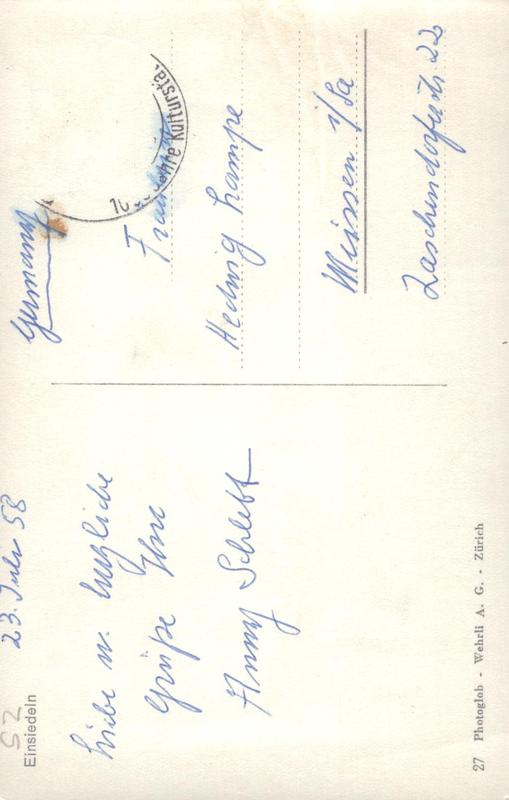 SZ
Einsiedeln
23. Juli 58
Liebe u. herzliche
Grüße Ihre
Anny Schlett
Germany
Jahre Kultursta
Hedwig Lampe
Meissen i/Sa
Zaschendorferstr. 22
27 Photoglob - Wehrli A. G. - Zürich